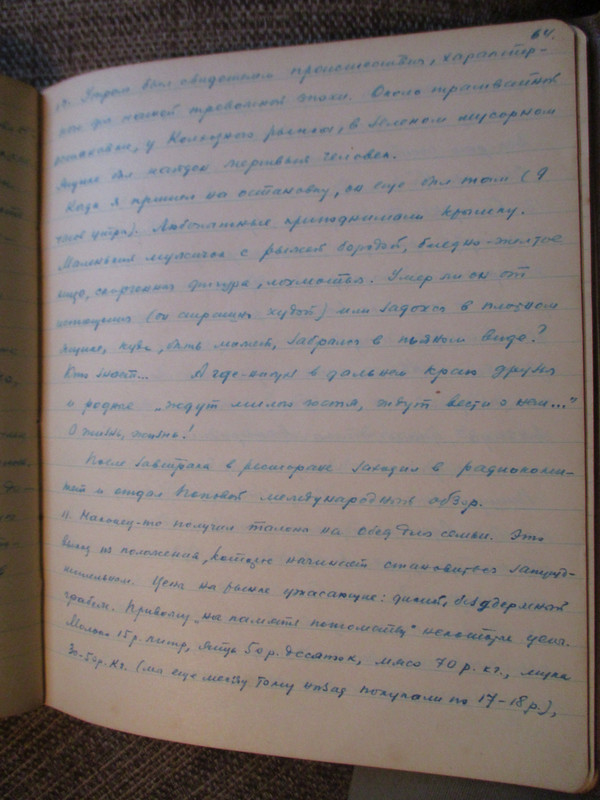 64.
Утром был свидетелем происшествия, характер-
ное для нашей тревожной эпохи. Около трамвайной
остановки, у Колхозного рынка, в зеленом мусорном
ящике был найден мертвый человек.
Когда я пришел на остановку, он еще был там (9
часов утра). Любопытные приподнимали крышку.
Маленький мужичок с рыжей бородой, бледно-желтое
лицо, скорченная фигура, лохмотья. Умер ли он от
истощения (он страшно худой) или задохся в плотном
ящике, куда, быть может, забрался в пьяном виде?
Кто знает... А где-нибудь в дальнем краю друзья
и родные „ждут милого гостя, ждут вести о нем..."
О жизнь, жизнь!
После завтрака в ресторане заходил в радиокоми-
тет и отдал Поповой международный обзор.
11. Наконец-то получил талоны на обед для семьи. Это
выход из положения, которое начинает становиться затруд-
нительным. Цены на рынке ужасающие: дикий, безудержный
грабеж. Привожу „на память потомству" некоторые цены.
Молоко 15 р. литр, яйца 50 р. десяток, мясо 70 р. кг., мука
50 р. кг. (мы еще месяц тому назад покупали по 17-18 р.),